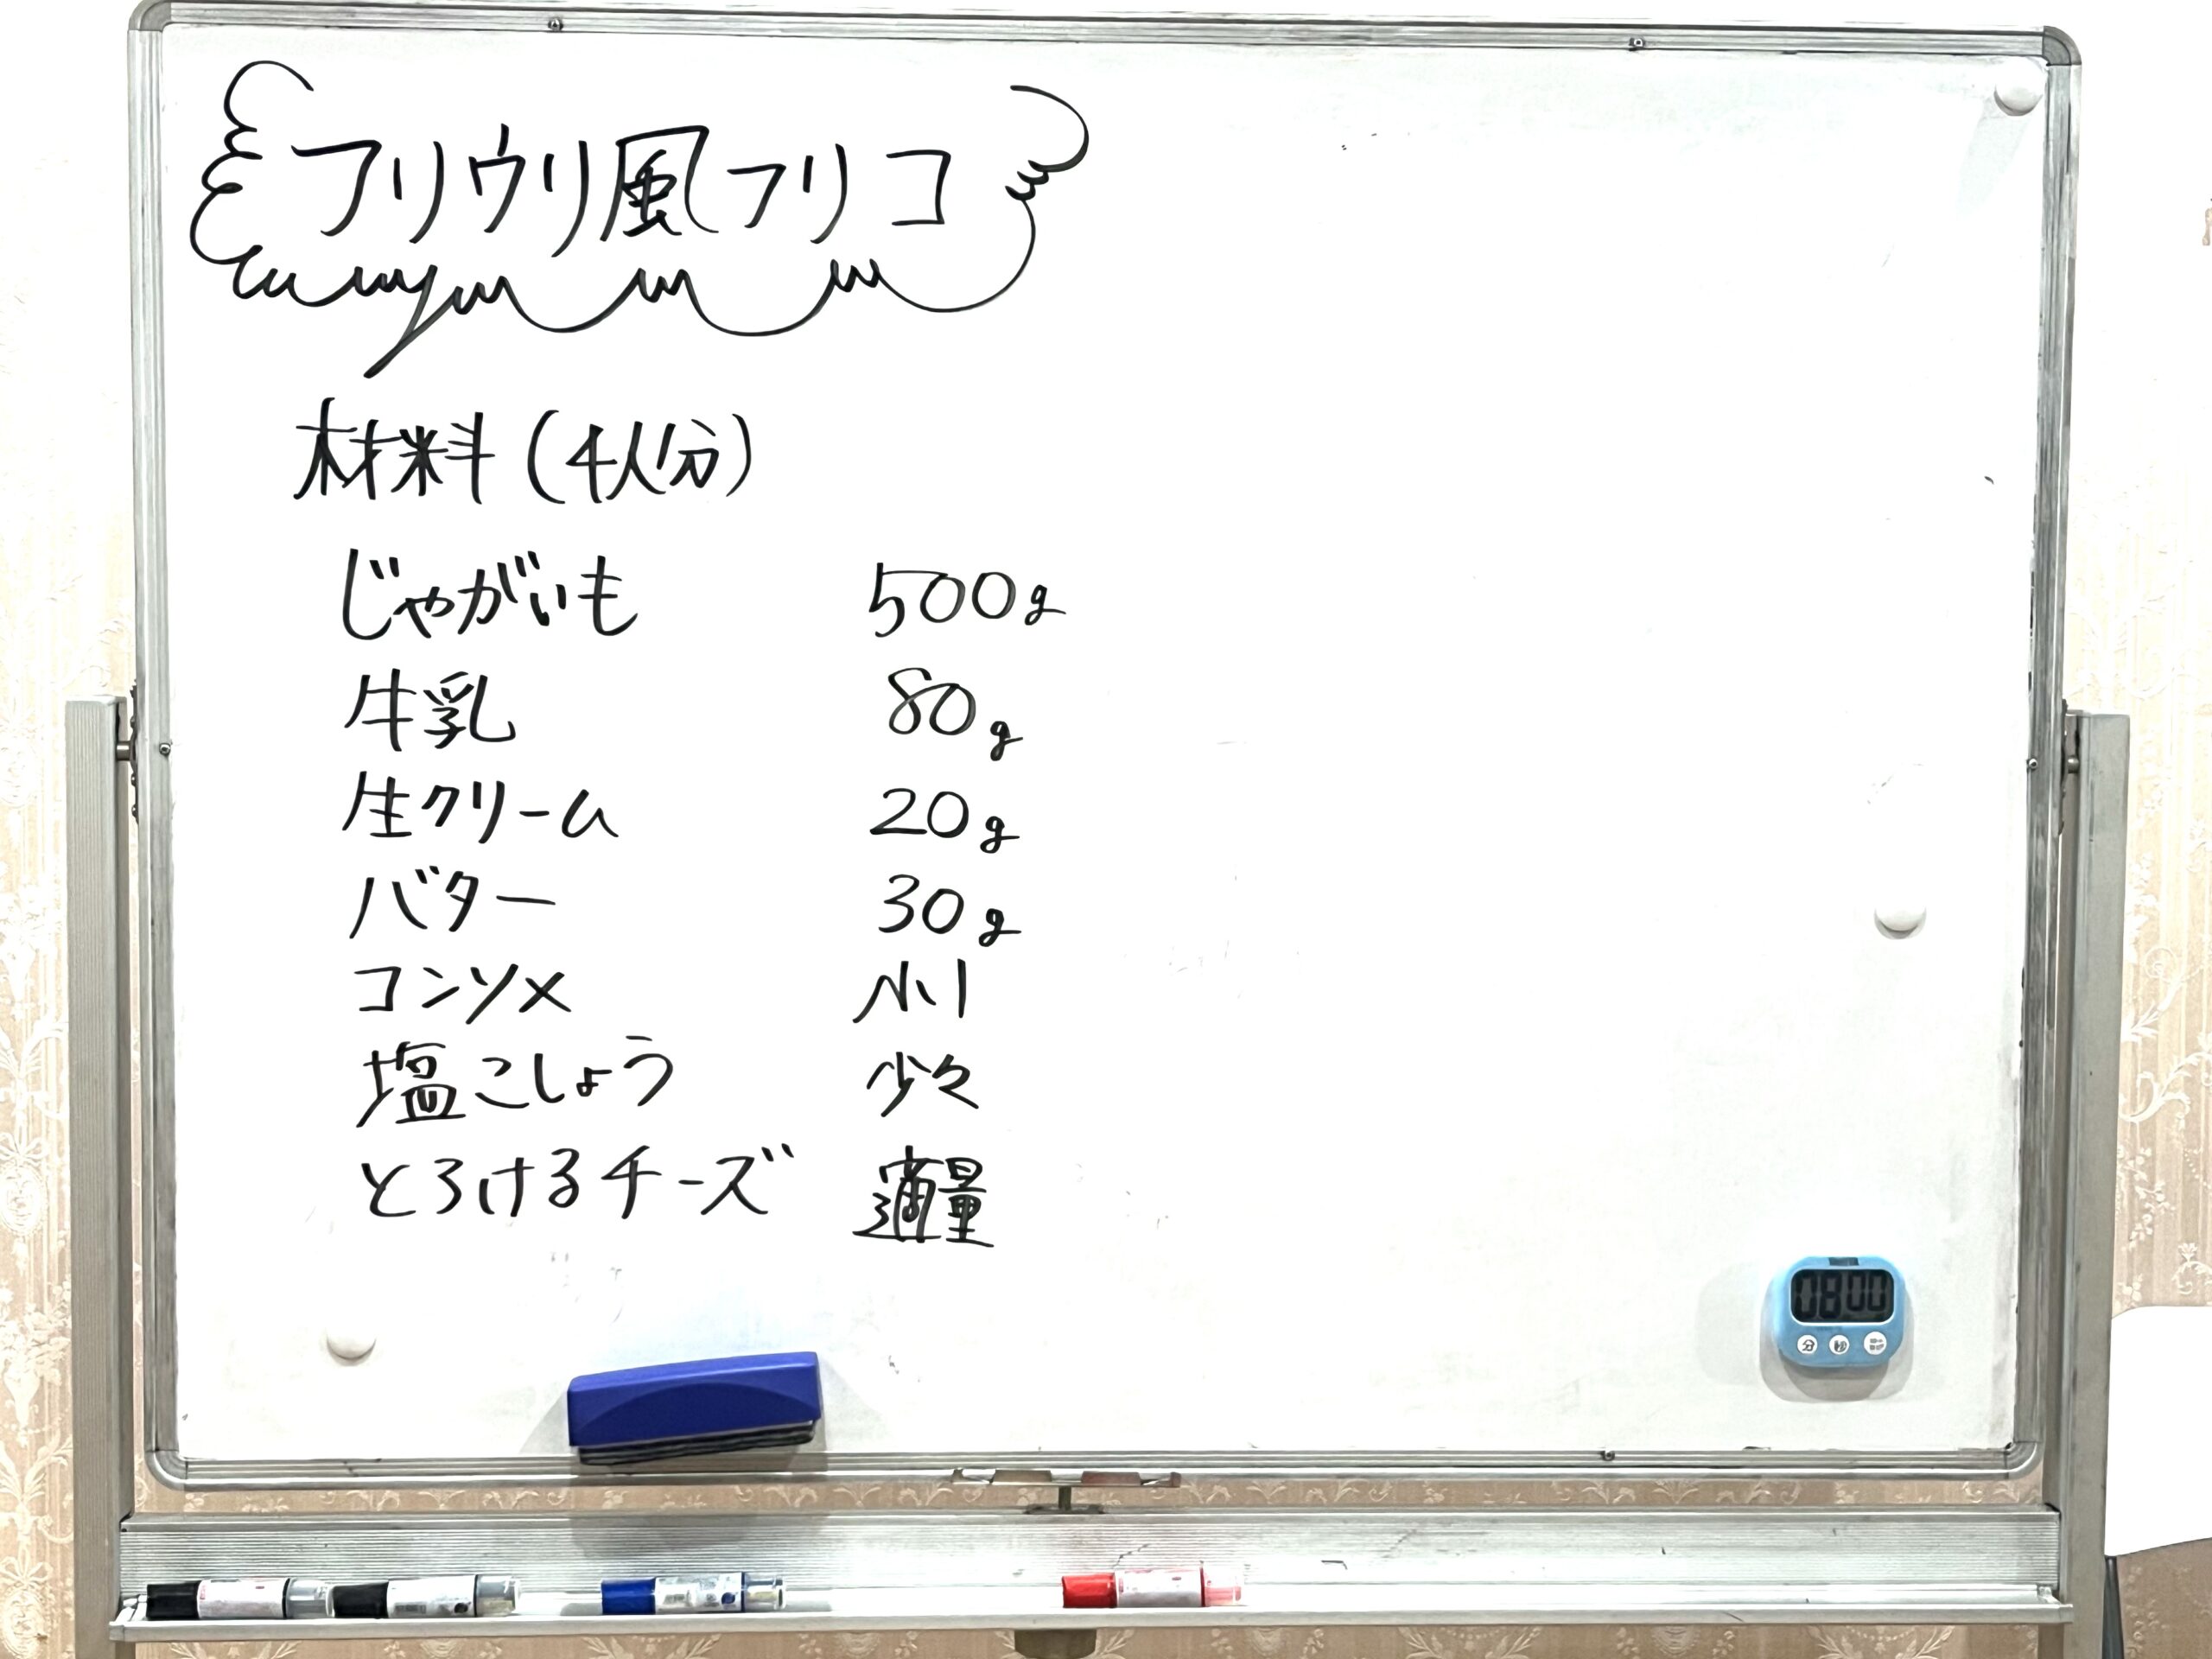 フリウリ風フリコ
材料(4人分)
じゃがいも 500g
牛乳 80g
生クリーム 20g
バター 30g
コンソメ 小1
塩こしょう 少々
とろけるチーズ 適量
08 00
分 秒